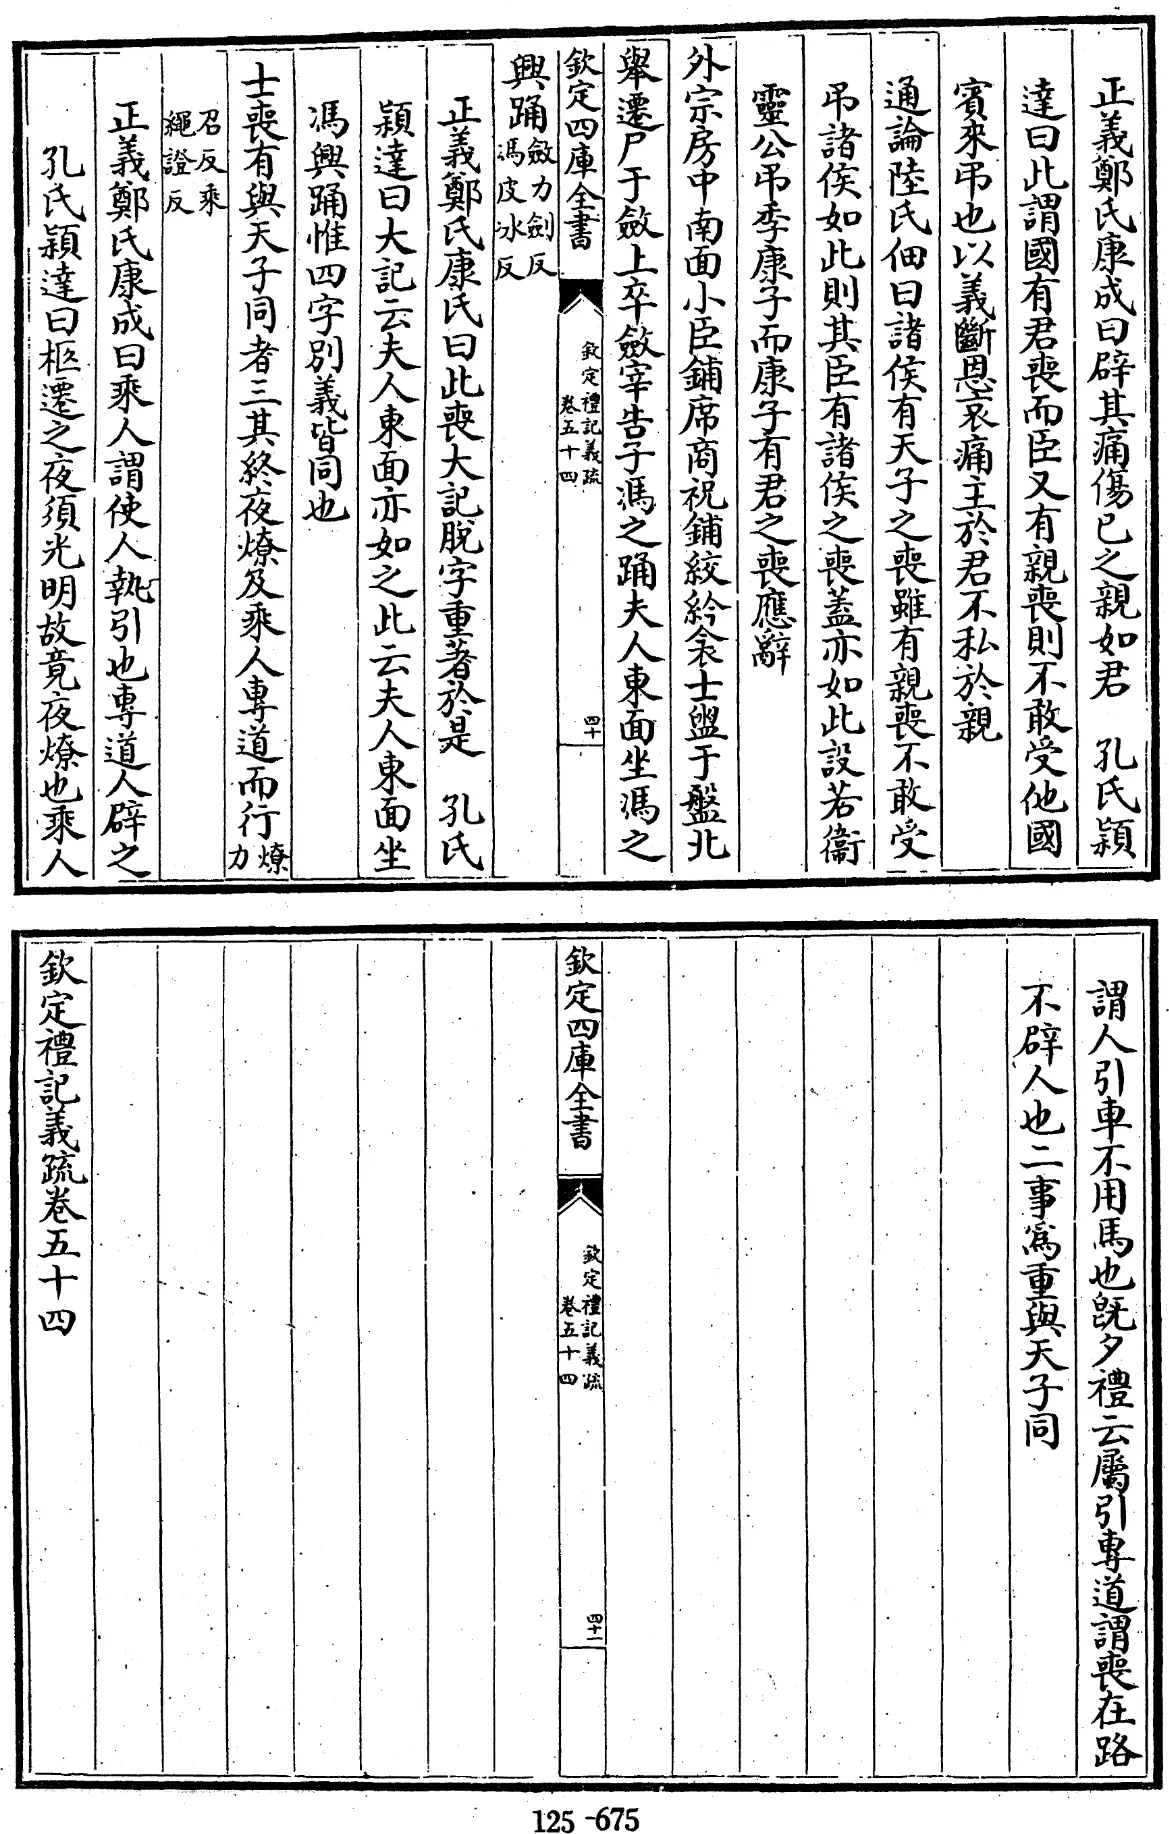 正義鄭氏康成曰辟其痛傷已之親如君　孔氏穎
達曰此謂國有君喪而臣又有親喪則不敢受他國
賓來弔也以義斷恩哀痛主於君不私於親
通論陸氏佃曰諸侯有天子之喪雖有親喪不敢受
弔諸侯如此則其臣有諸侯之喪蓋亦如此設若衞
靈公弔季康子而康子有君之喪應辭
外宗房中南面小臣鋪席商祝鋪絞紟衾士盥于盤北
舉遷尸于斂上卒斂宰告子馮之踊夫人東面坐馮之
欽定四庫全書
欽定禮記義疏
卷五十四
四十
興踊斂力劍反
馮皮冰反
正義鄭氏康氏曰此喪大記脫字重著於是　孔氏
穎達曰大記云夫人東面亦如之此云夫人東面坐
馮興踊惟四字別義皆同也
士喪有與天子同者三其終夜燎及乘人專道而行燎力
召反乘
繩證反
正義鄭氏康成曰乘人謂使人執引也專道人辟之
孔氏穎達曰柩遷之夜須光明故竟夜燎也乘人
謂人引車不用馬也旣夕禮云屬引專道謂喪在路
不辟人也二事爲重與天子同
欽定四庫全書
欽定禮記義疏
卷五十四
四十一
欽定禮記義疏卷五十四
125-675